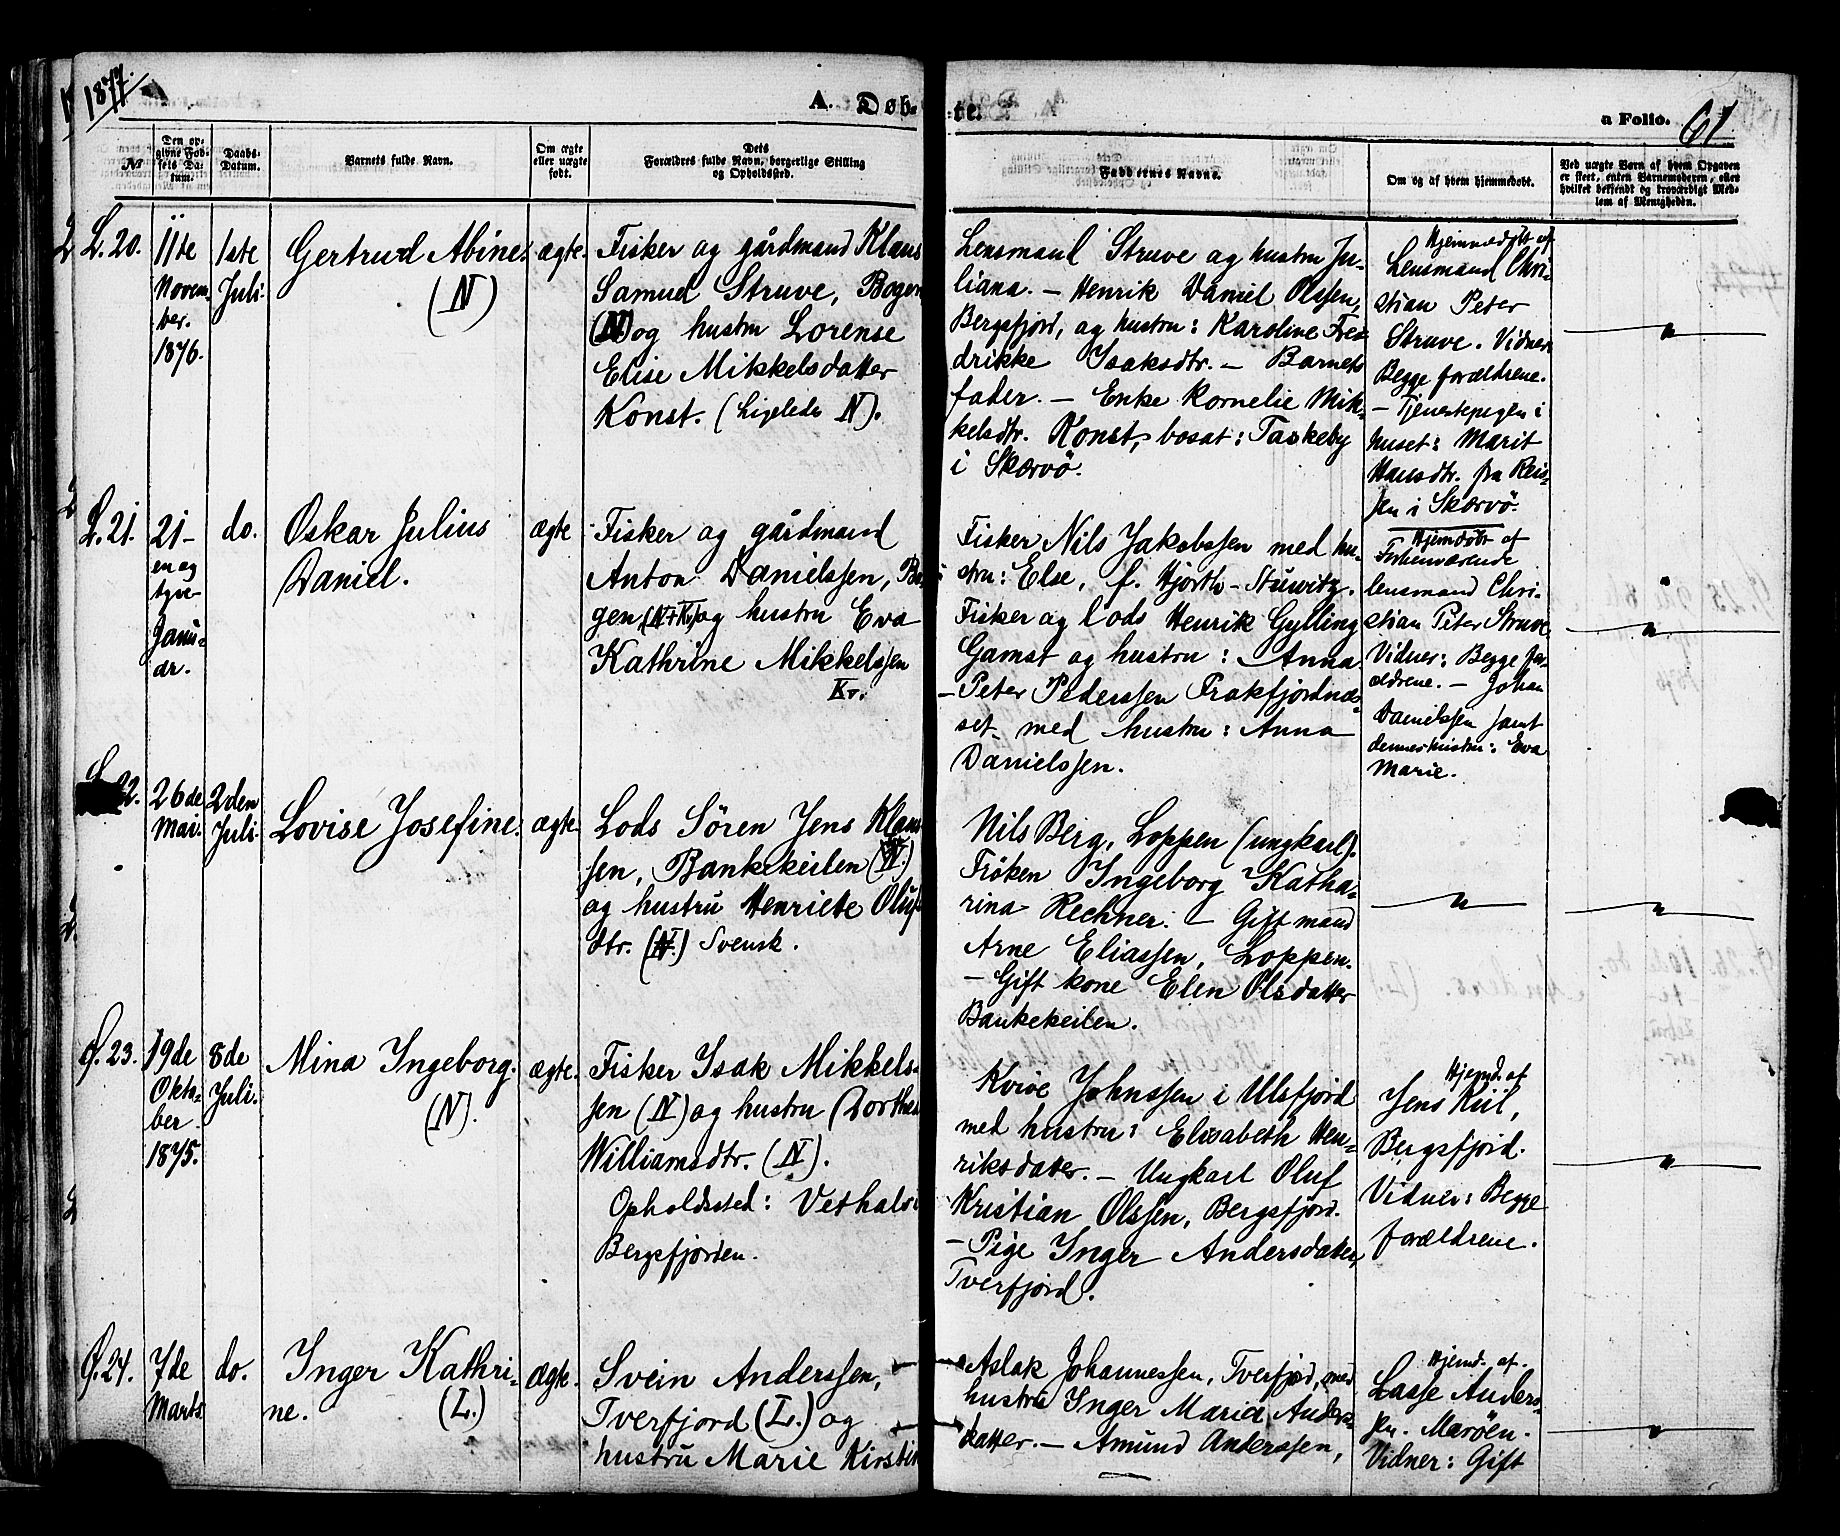 1877.
A. Døb-
te.
a Folio. 61
№
Den op-
givne Fød-
sels Da-
tum.
Daabs-
Datum.
Barnets fulde Navn.
Om ægte
eller uægte
født.
Dets
Forældres fulde Navn, borgerlige Stilling
og Opholdssted.
Faddernes Navne.
Om og af hvem hjemmedøbt.
Ved uægte Børn af hvem Opgaven
er skeet, enten Barnemoderen, eller
hvilket bekjendt og troværdigt Med-
lem af Menigheden.
L. 20.
11te
Novem-
ber.
1876.
1ste
Juli.
Gertrud Abine.
(N)
ægte.
Fisker og gårdmand Klaus
Samuel Struve, Bogen
(N) og hustru Lorense
Elise Mikkelsdatter
Konst. (Ligeledes N).
Lensmand Struve og hustru Ju-
liana. — Henrik Daniel Olssen,
Bergsfjord, og hustru: Karoline Fre-
drikke Isaksdtr. — Barnets
fader. — Enke Kornelie Mik-
kelsdtr. Konst, bosat: Taskeby
i Skærvö.
Hjemmedøbt af
Lensmand Chri-
stian Peter
Struve. Vidner:
Begge forældrene.
— Tjenestepigen i
huset: Marit
Hansdtr. fra Reis-
en i Skærvö.
L. 21.
21-
en og
tyve-
Janu-
ar.
do.
Oskar Julius
Daniel.
ægte
Fisker og gårdmand
Anton Danielssen, Bo-
gen, (N+Kv) og hustru Eva
Kathrine Mikkelssen
Kv.
Fisker Nils Jakobssen med hu-
stru: Else, f. Hjorth-Stuwitz.
Fisker og lods Henrik Gylling
Gamst og hustru: Anna.
— Peter Pederssen Frakfjordnæs-
set med hustru: Anna
Danielssen.
Hjemdøbt af
Forhenværende
lensmand Chri-
stian Peter Struve.
Vidner: Begge for-
ældrene. — Johan
Danielssen samt
dennes hustru: Eva
Marie.
L. 22.
26de
Mai.
2den
Juli
Lovise Josefine.
ægte
Lods Sören Jens Klaus-
sen, Bankekeilen (N.)
og hustru Henriete Oluf
dtr. (N.) Svensk.
Nils Berg, Loppen (ungkarl).
Fröken Ingeborg Katha-
rina Rechner. — Gift mand
Arne Eliassen, Loppen.
— Gift kone Elen Olsdatter
Bankekeilen.
Ø. 23.
19de
Okto-
ber
1875.
8de
Juli.
Mina Ingeborg.
(N).
ægte.
Fisker Isak Mikkels-
sen (N) og hustru Dorthea
Williamsdtr. (N).
Opholdssted: Vethals
Bergsfjorden.
Kvive Johnssen i Ulsfjord
med hustru: Elisabeth Hen-
riksdatter. — Ungkarl Oluf
Kristian Olssen, Bergsfjord.
— Pige Inger Andersdatter,
Tverfjord.
Hjemd. af
Jens Kiil,
Bergsfjord.
Vidner: Begge
forældrene.
Ø. 24.
7de
Marts
do.
Inger Kathri-
ne. (L.)
ægte.
Svein Anderssen,
Tverfjord (L.) og
hustru Marie Kirstin
Aslak Johannessen, Tverfjord, med
hustru Inger Maria Anders-
datter. — Amund Anderssen,
Hjemd. af.
Lasse Anders-
sen. Marøen.
Vidner: Gift